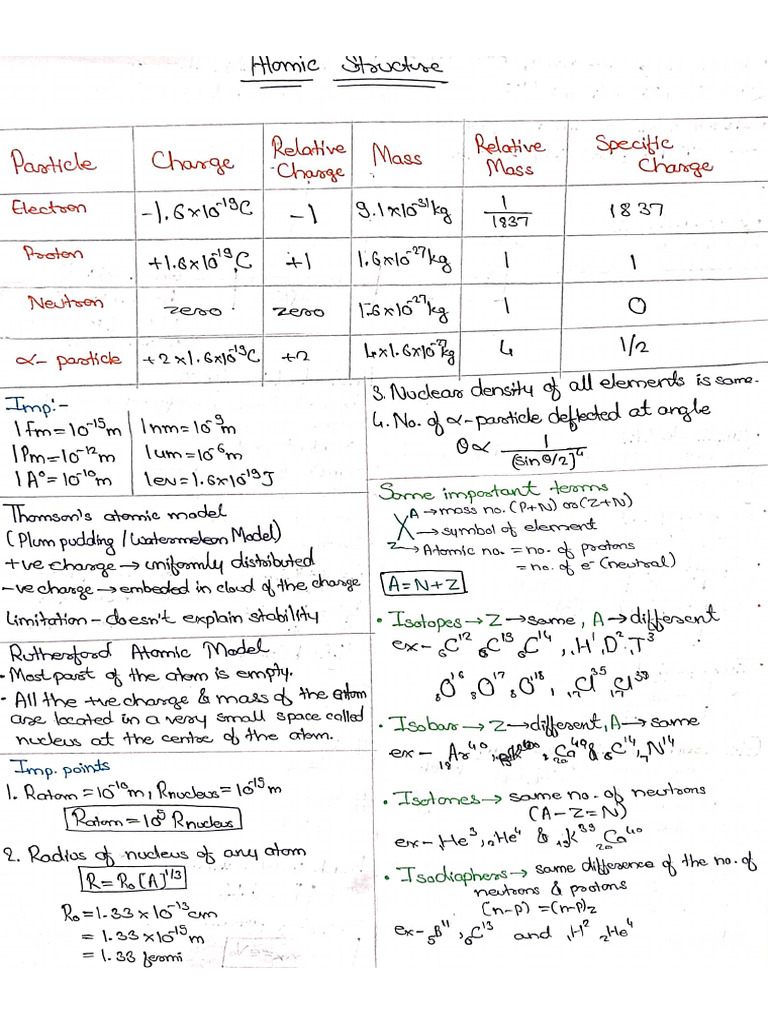 Atomic Structure
Particle Charge Relative Charge Mass Relative Mass Specific Charge
Electron -1.6×10⁻¹⁹C -1 9.1×10⁻³¹kg 1/1837 1837
Proton +1.6×10⁻¹⁹C +1 1.6×10⁻²⁷kg 1 1
Neutron zero zero 1.6×10⁻²⁷kg 1 0
α- particle +2×1.6×10⁻¹⁹C +2 4×1.6×10⁻²⁷kg 4 1/2
Imp:-
1 fm = 10⁻¹⁵m 1nm = 10⁻⁹m
1Pm = 10⁻¹²m 1um = 10⁻⁶m
1A° = 10⁻¹⁰m 1eV = 1.6×10⁻¹⁹J
Thomson's atomic model
(Plum pudding / Watermeleon Model)
+ve charge → uniformly distributed
-ve charge → embeded in cloud of the charge
Limitation - doesn't explain stability
Rutherford Atomic Model
- Most part of the atom is empty.
- All the +ve charge & mass of the atom
are located in a very small space called
nucleus at the centre of the atom.
Imp. points
1. Ratom = 10⁻¹⁰m, Rnucleus = 10⁻¹⁵m
Ratom = 10⁵ Rnucleus
2. Radius of nucleus of any atom
R = R₀ [A]^1/3
R₀ = 1.33 × 10⁻¹³ cm
= 1.33 × 10⁻¹⁵ m
= 1.33 fermi
3. Nuclear density of all elements is same.
4. No. of α-particle deflected at angle
θ ∝ 1/(sin θ/2]⁴
Some important terms
A → mass no. (P+N) or (Z+N)
X → symbol of element
Z → Atomic no. = no. of protons
= no. of e⁻ (neutral)
A = N + Z
• Isotopes → Z → same, A → different
ex - ₆C¹² ₆C¹³ ₆C¹⁴, ₁H¹ ₁D² ₁T³
₈O¹⁶ ₈O¹⁷ ₈O¹⁸, ₁₇Cl³⁵ ₁₇Cl³⁹
• Isobar → Z → different, A → same
ex - ₁₈Ar⁴⁰, ₂₀Ca⁴⁰ & ₆C¹⁴, ₇N¹⁴
• Isotones → same no. of neutrons
(A - Z = N)
ex - He³, ₂He⁴ & ₁₉K³⁹ ₂₀Ca⁴⁰
• Isodiaphers → same difference of the no. of
neutrons & protons
(n-p) = (n-p)₂
ex - ₅B¹¹, ₆C¹³ and ₁H² ₂He⁴